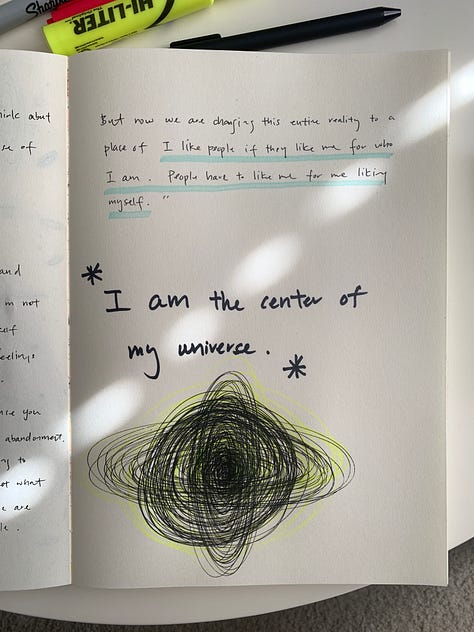 Sharpie
HI-LITER
think about
se of
and
m not
self
feelings
nce you
abandonment.
ng to
ot what
e are
le.
But now we are changing this entire reality to a
place of I like people if they like me for who
I am. People have to like me for me liking
myself."
* I am the center of
my universe. *